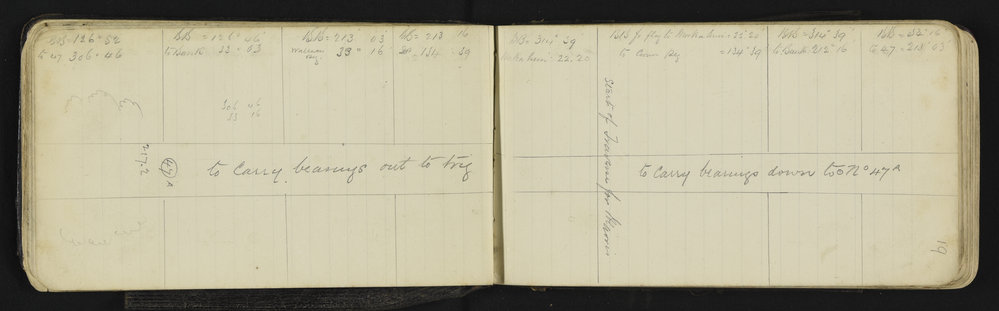 BB = 126° 52
to 47 306° 46
BB = 126° 46
to Bank 33° 03
306 46
33 16
BB = 213 03
33° 16
BB = 213 16
134 39
217.2
47 A
to Carry bearings out to trig
BB = 314° 39
22.20
BB fr flag to = 22° 20
to = 134° 39
BB = 314° 39
to Bank 212° 16
BB = 32° 16
to 47 = 213° 03'
Start of Traverse for
to Carry bearings down to N° 47 A
19